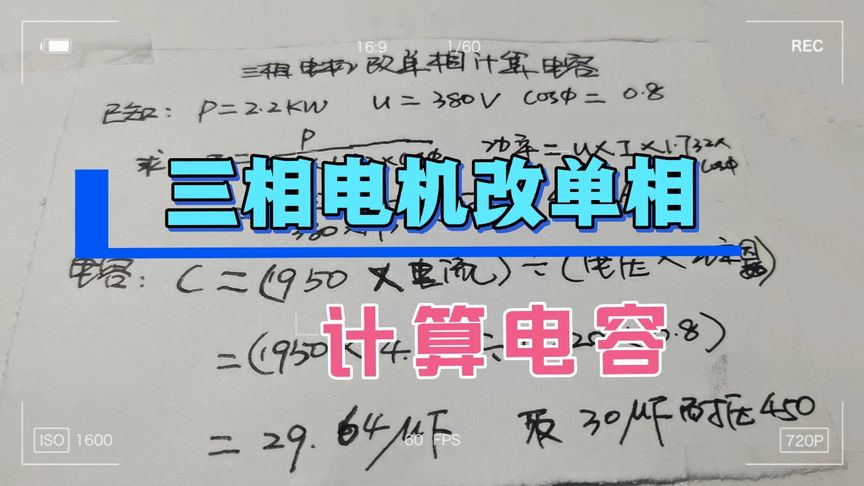 16:9 1/60 REC
三相电机改单相计算电容
已知: P=2.2KW U=380V cosφ=0.8
求 P 功率=U×I×1.732×
cosφ
三相电机改单相
380×
电容: C=(1950×电流)÷(电压×功率因数)
计算电容
=(1950×4. 0.8)
=29.64μF 取30μF耐压450
ISO 1600 60 FPS 720P